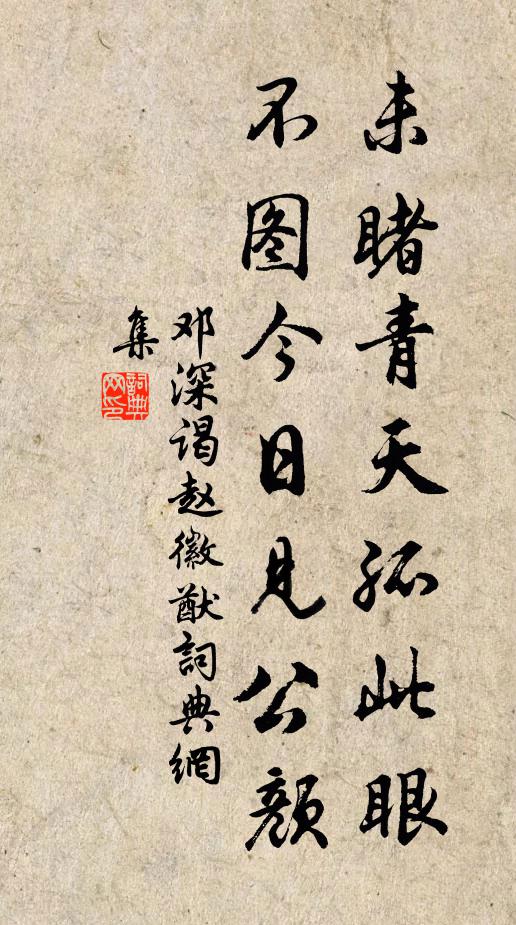 未睹青天孤此眼
不图今日见公颜
邓深谒赵徽猷詞典網
集
詞典
网印